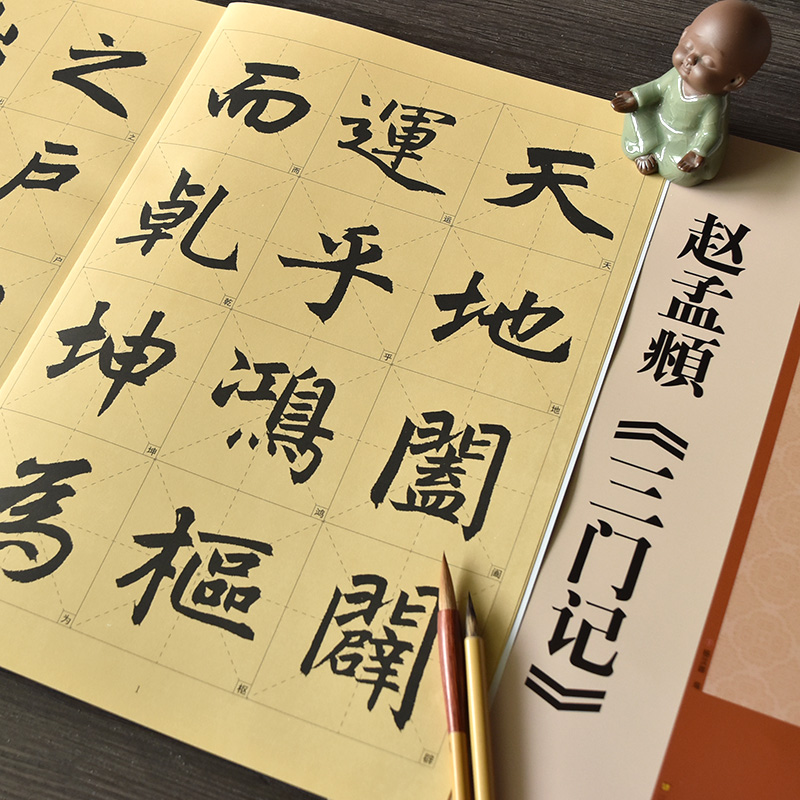 天地闔闢
運乎鴻樞
而乾坤為
之戶
天
地
运
乎
鸿
枢
而
乾
坤
为
之
户
1
赵孟頫《三门记》